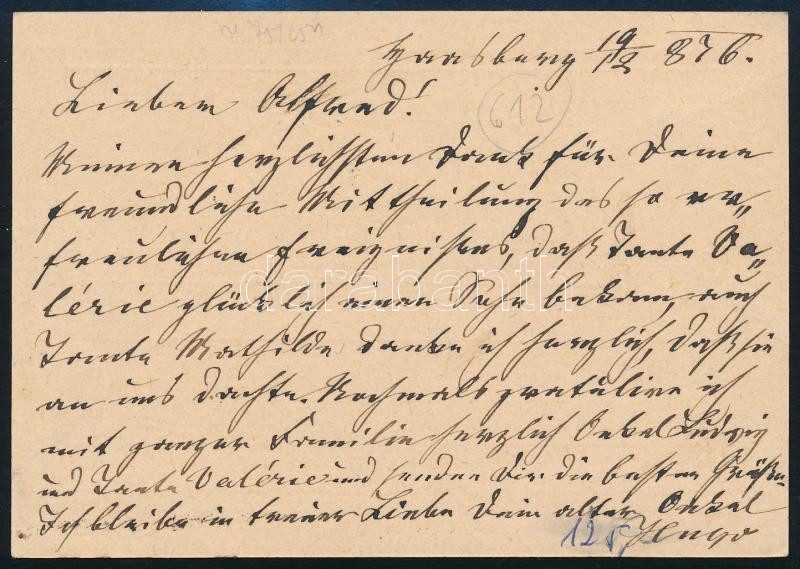 Haasberg 19/12 876.
Lieber Alfred!
612
Meinen herzlichsten Dank für Deine
freundliche Mittheilung des so er„
freulichen Ereignisses, daß Tante Va„
lérie glücklich einen Sohn bekam, auch
Tante Mathilde danke ich herzlich, daß sie
an uns dachte. Nochmals gratulire ich
mit ganzer Familie herzlich Onkel Ludwig
und Tante Valérie und sende Dir die besten Grüße.
Ich bleibe in treuer Liebe Dein alter Onkel
Hugo
darabanth